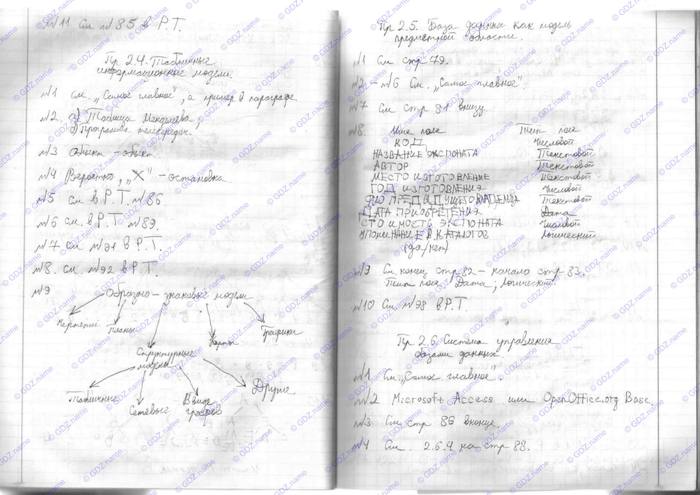 №11 См №85 в Р.Т.
Пр 2.4. Табличные
информационные модели.
№1 см. „Самое главное", а пример в параграфе
№2. а) Таблица Менделеева;
б) Программа телепередач.
№3 Объекты - объекты
№4 Вероятно, „X" - остановка
№5 См в Р.Т. №86
№6 см. в Р.Т №89
№7 см №91 в Р.Т.
№8. см. №92 в Р.Т.
№9 Образно-знаковые модели
Чертежи Планы Карты Графики
Структурные
модели
Табличные Сетевые В виде
графов Другие
Пр 2.5. База данных как модель
предметной области.
№1 См стр 79.
№2 - №6 См. „Самое главное"
№7 См стр 81 внизу.
№8. Имя поле Тип поле
КОД Числовой
НАЗВАНИЕ ЭКСПОНАТА Текстовой
АВТОР Текстовой
МЕСТО ИЗГОТОВЛЕНИЕ Текстовой
ГОД ИЗГОТОВЛЕНИЯ Числовой
ФИО ПРЕДЫДУЩЕГО ВЛАДЕЛЬЦА Текстовой
ДАТА ПРИОБРЕТЕНИЯ Дата
СТОИМОСТЬ ЭКСПОНАТА Числовой
УПОМИНАНИЕ В КАТАЛОГОВ Логический
(да/нет)
№9 См конец стр 82 - начало стр 83.
Тип поле Дата, Логический.
№10 См №98 в Р.Т.
Пр 2.6. Система управления
базами данных
№1 См „Самое главное".
№2 Microsoft Access или OpenOffice.org Base
№3 См стр 86 внизу
№4 См. 2.6.4 на стр 88.
© GDZ.name